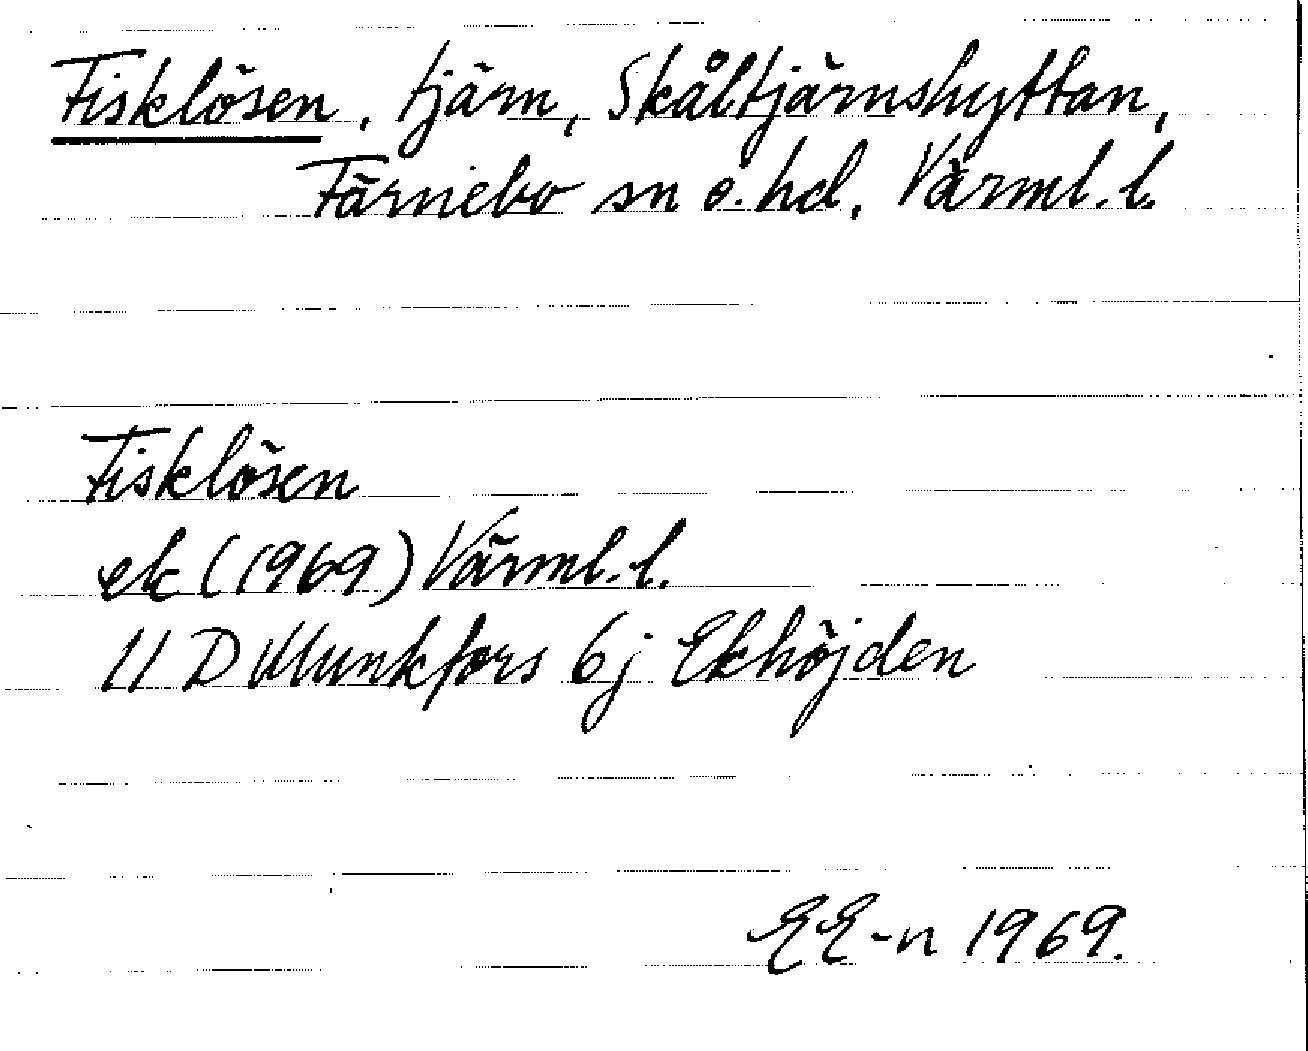 Fisklösen, tjärn, Skåltjärnshyttan,
Färnebo sn o. hd, Värml. l.
Fisklösen
ek (1969) Värml. l.
11 D Munkfors 6j Ekhöjden
EE-n 1969.